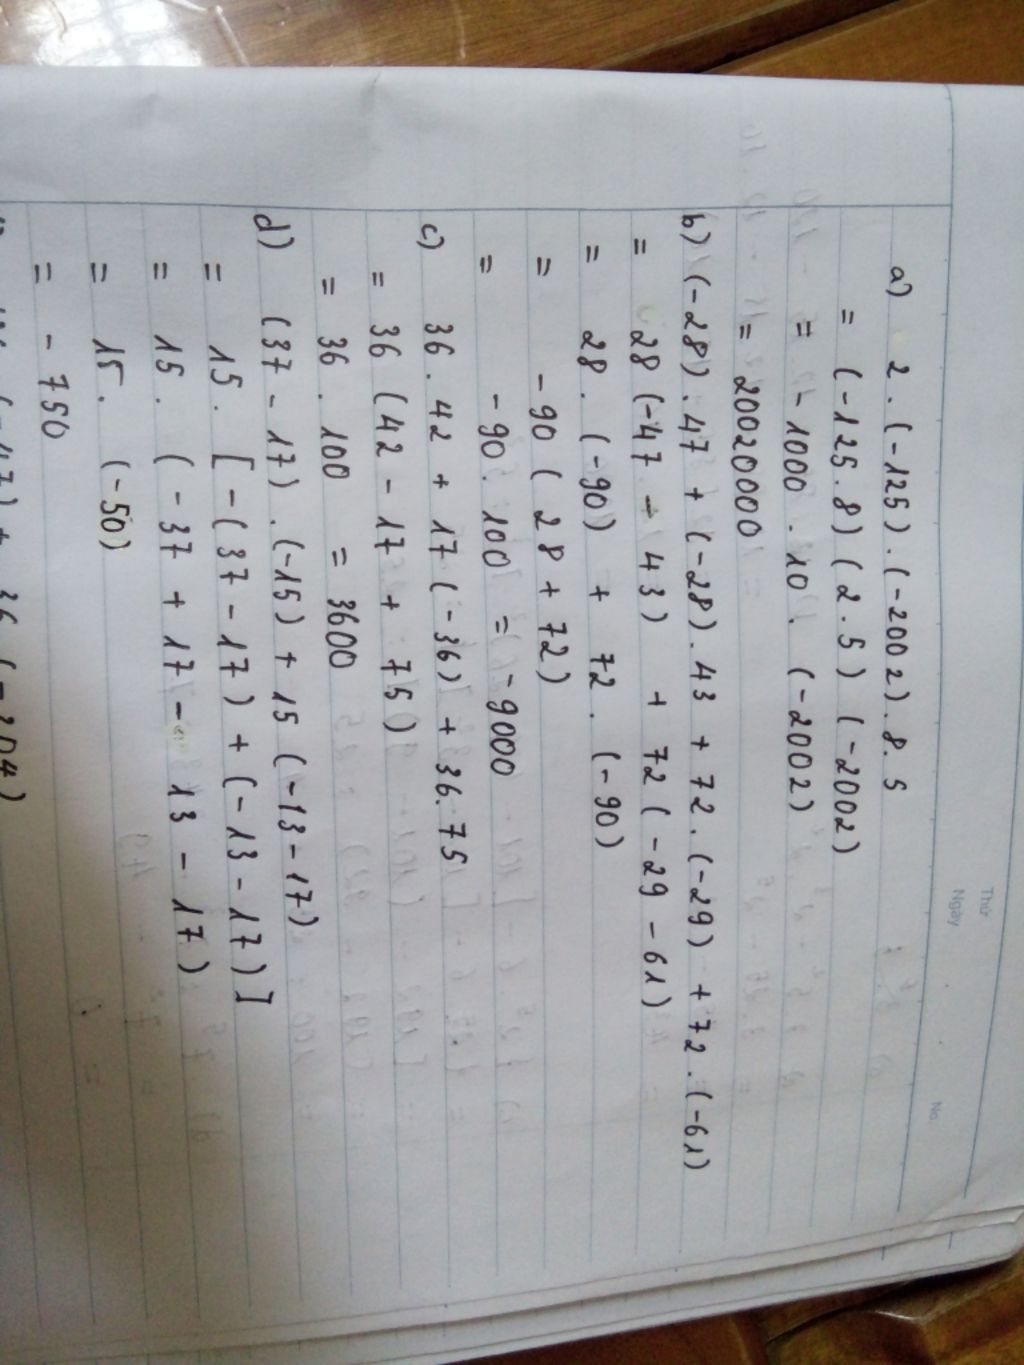 Thứ
Ngày
No.
a) 2 . (-125) . (-2002) . 8 . 5
= (-125 . 8) (2 . 5) (-2002)
= -1000 . 10 . (-2002)
= 20020000
b) (-28) . 47 + (-28) . 43 + 72 . (-29) + 72 . (-61)
= 28 (-47 - 43) + 72 (-29 - 61)
= 28 . (-90) + 72 . (-90)
= -90 (28 + 72)
= -90 . 100 = -9000
c) 36 . 42 + 17 (-36) + 36 . 75
= 36 (42 - 17 + 75)
= 36 . 100 = 3600
d) (37 - 17) . (-15) + 15 (-13 - 17)
= 15 . [-(37 - 17) + (-13 - 17)]
= 15 . (-37 + 17 - 13 - 17)
= 15 . (-50)
= -750